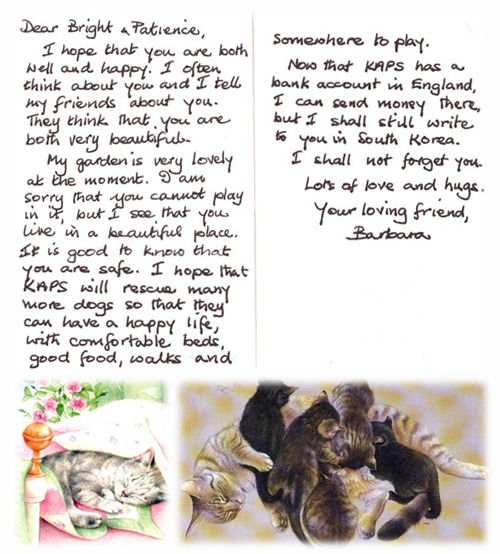 Dear Bright & Patience,
I hope that you are both
well and happy. I often
think about you and I tell
my friends about you.
They think that you are
both very beautiful.
My garden is very lovely
at the moment. I am
sorry that you cannot play
in it, but I see that you
live in a beautiful place.
It is good to know that
you are safe. I hope that
KAPS will rescue many
more dogs so that they
can have a happy life,
with comfortable beds,
good food, walks and
somewhere to play.
Now that KAPS has a
bank account in England,
I can send money there,
but I shall still write
to you in South Korea.
I shall not forget you.
Lots of love and hugs.
Your loving friend,
Barbara